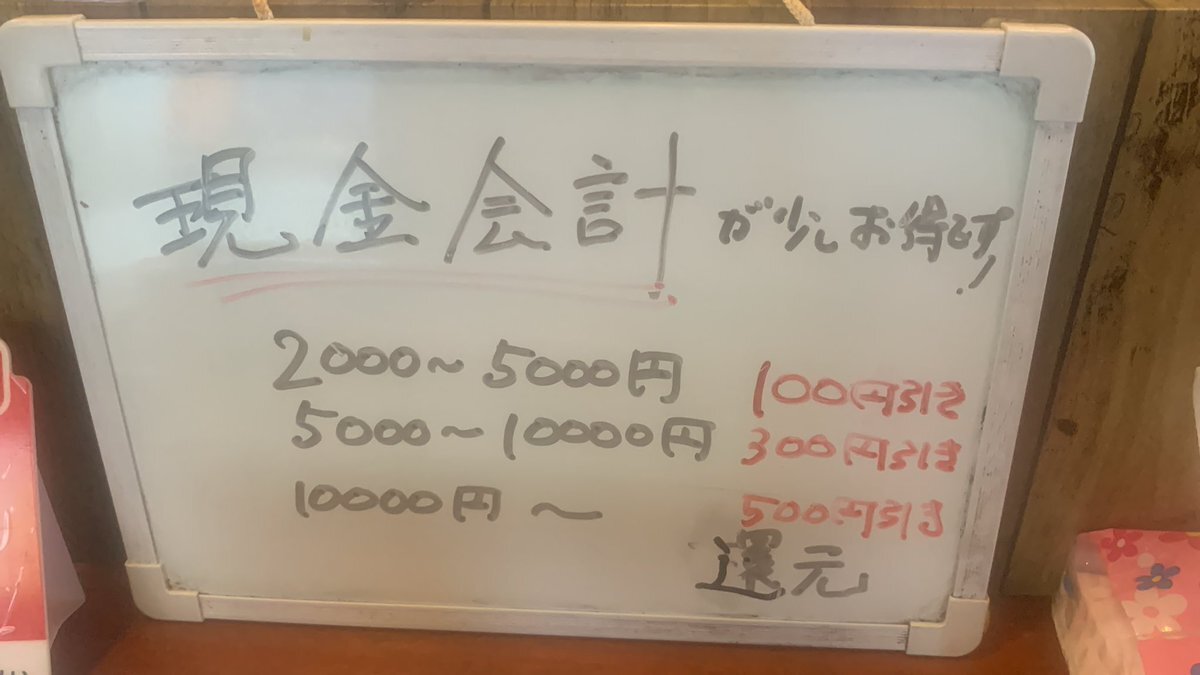 現金会計が少しお得です!
2000~5000円 100円引き
5000~10000円 300円引き
10000円~ 500円引き
還元